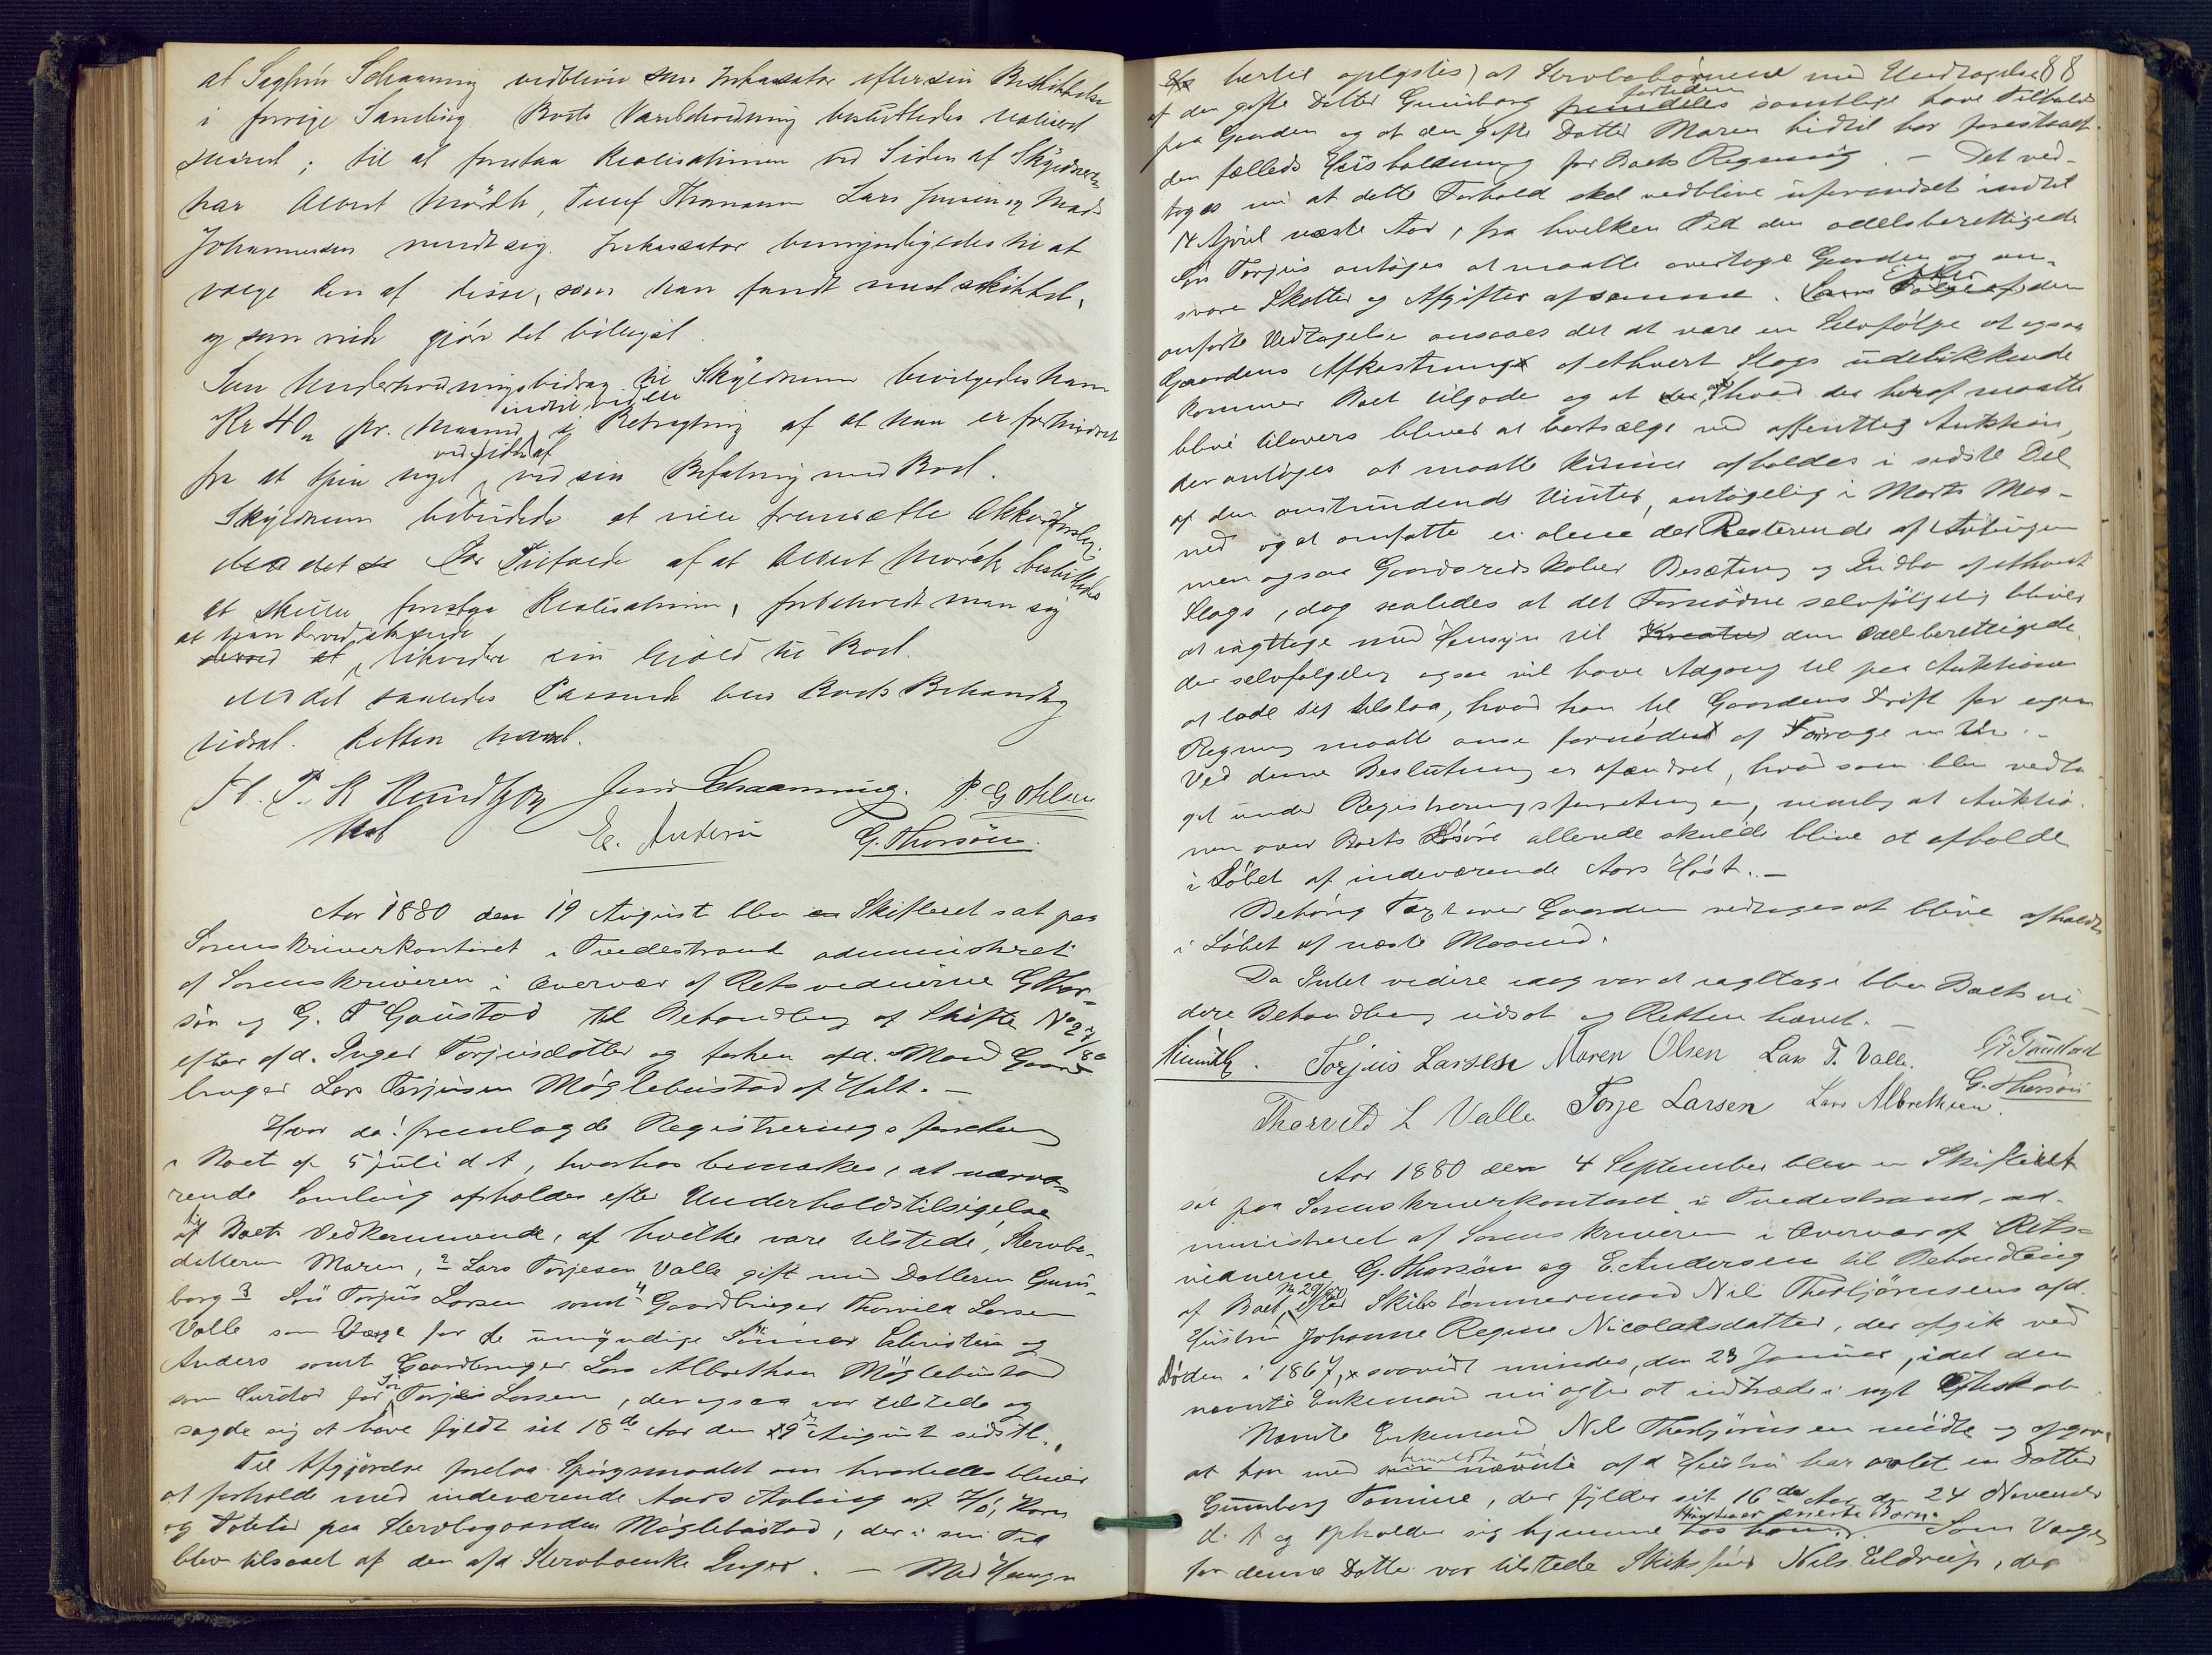 at Sagfører Schanning vedbliver som Inkassator efter sin Beskikkelse
i forrige Samling. Boets Varebeholdning besluttedes realiseret
snarest; til at forestaa Realisationen ved Siden af Skyldneren
har Albert Mørch, Lars Jensen og Mads
Johannesen meldt sig. Inkassator bemyndigedes til at
vælge den af disse, som han fandt mest skikket,
og som vilde gjøre det billigst.
Som Underholdningsbidrag til Skyldneren bevilgedes ham
Kr 40 pr. Maaned indtil videre i Betragtning af at han er forhindret
fra at tjene noget ved Siden af ved sin Befatning med Boet.
Skyldneren bebudede at ville fremsætte Akkordforslag.
For Tilfælde af at Albert Mørch besluttedes
at skulle forestaa Realisationen, forbeholdt man sig
at han derved skulde likvidere sin Gjæld til Boet.
Med det saaledes Passerede blev Boets Behandling
udsat. Retten hævet.
Jens Schanning. P. G Ohlsen
E. Andersen G. Thorsön.
Aar 1880 den 19 August blev en Skifteret sat paa
Sorenskriverkontoret i Tvedestrand administreret
af Sorenskriveren i Overvær af Retsvidnerne G Thor-
søn og G. T Goustad til Behandling af Skifte No 27/80
efter afd. Inger Torjusdatter og forhen afd. Mand Gaard-
bruger Lars Torjusen Møglebustad af Holt. —
Hvor da: fremlagde Registreringsforretning
i Boet af 5 Juli d A, hvorhos bemærkes, at nærvæ-
rende Samling afholdes efter Underholdstilsigelse
til Boets Vedkommende, af hvilke vare tilstede, Stervbo-
datteren Maren, 2 Lars Torjesen Valle gift med Datteren Gun-
borg 3 Søn Torjus Larsen samt 4 Gaardbruger Thorvild Larsen
Valle som Værge for de umyndige Sønner Christen og
Anders samt Gaardbruger Lars Albrethsen Møglebustad
som Curator for Søn Torje Larsen, der ogsaa var tilstede og
sagde sig at have fyldt sit 18de Aar den 9 August sidstl.
Til Afgjørelse forelaa Spørgsmaalet om hvorledes bliver
at forholde med indeværende Aars Avling af Hø, Korn
og Poteter paa Stervbogaarden Møglebustad, der i sin Tid
blev tilsaaet af den afd Stervboenke Inger. — Med Hensyn
88
hertil oplystes, at Stervbobørnene med Undtagelse
af den gifte Datter Gunborg fortiden samtlige have Tilhold
paa Gaarden og at den gifte Datter Maren hidtil har forestaaet
den fælleds Husholdning for Boets Regning. — Det ved-
toges nu at dette Forhold skal vedblive uforandret indtil
14 April næste Aar, fra hvilken Tid den odelsberettigede
Søn Torjus antages at maatte overtage Gaarden og an-
svare Skatter og Afgifter af samme. Efter den
anførte Vedtagelse ansaaes det at være en Selvfølge at ogsaa
Gaardens Afkastning af ethvert Slags udelukkende
kommer Boet tilgode og at hvad der heraf maatte
blive tilovers bliver at bortsælge ved offentlig Auktion,
der antages at maatte kunne afholdes i sidste Del
af den anstundende Vinter, antagelig i Marts Maa-
ned og at omfatte ei alene det Resterende af Avlingen
men ogsaa Gaardsredskaber Besætning og Indbo af ethvert
Slags, dog saaledes at det Fornødne selvfølgelig bliver
at iagttage med Hensyn til den Odelsberettigede,
der selvfølgelig ogsaa vil have Adgang til paa Auktionen
at lade sig tilslaa, hvad han til Gaardens Drift for egen
Regning maatte anse fornødent af Forrage m m. —
Ved denne Beslutning er afændret, hvad som blev vedta-
get under Registreringsforretningen, nemlig at Auktio-
nen over Boets Løsøre allerede skulde blive at afholde
i Løbet af indeværende Aars Høst. —
Behørig Taxt over Gaarden vedtoges at blive afholdt
i Løbet af næste Maaned.
Da Intet videre idag var at iagttage blev Boets vi-
dere Behandling udsat og Retten hævet. —
Torjus Larsen Maren Olsen Lars T. Valle. G T Goustad
G. Thorsön
Thorvild L Valle Torje Larsen Lars Albrethsen.
Aar 1880 den 4 September blev en Skifteret
sat paa Sorenskriverkontoret i Tvedestrand, ad-
ministreret af Sorenskriveren i Overvær af Rets-
vidnerne G. Thorsøn og E. Andersen til Behandling
af Boet No 29/80 efter Skibstømmermand Nils Thorbjørnsens afd.
Hustru Johanne Regine Nicolaisdatter, der afgik ved
Døden i 1867, saavidt mindes, den 23 Januar, idet den
nævnte Enkemand nu agter at indtræde i nyt Ægteskab.
Nævnte Enkemand Nils Thorbjørnsen mødte og opgav,
at han med bemeldte sin afd Hustru har avlet en Datter
Gunborg Tomine, der fylder sit 16de Aar den 24 November
d. A og opholder sig hjemme hos ham. Hun er eneste Barn. Som Værge
for denne Datter var tilstede Skibsfører Nils Eldrup, der